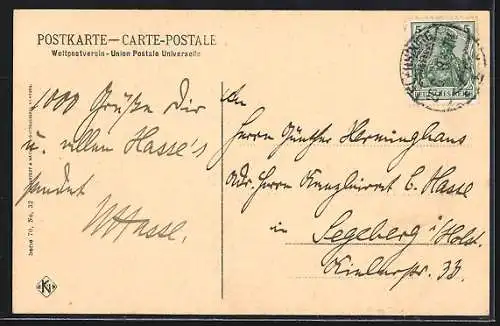 POSTKARTE — CARTE-POSTALE
Weltpostverein - Union Postale Universelle
1000 Grüße Dir
u. vielen Hasse's
sendet
Hasse.
An
Herrn Günther Herminghaus
Adr. Herrn Kanzleirat C. Hasse
in Segeberg i/Holst.
Kielerstr. 33.
5
DEUTSCHES REICH
Serie 70, No. 32